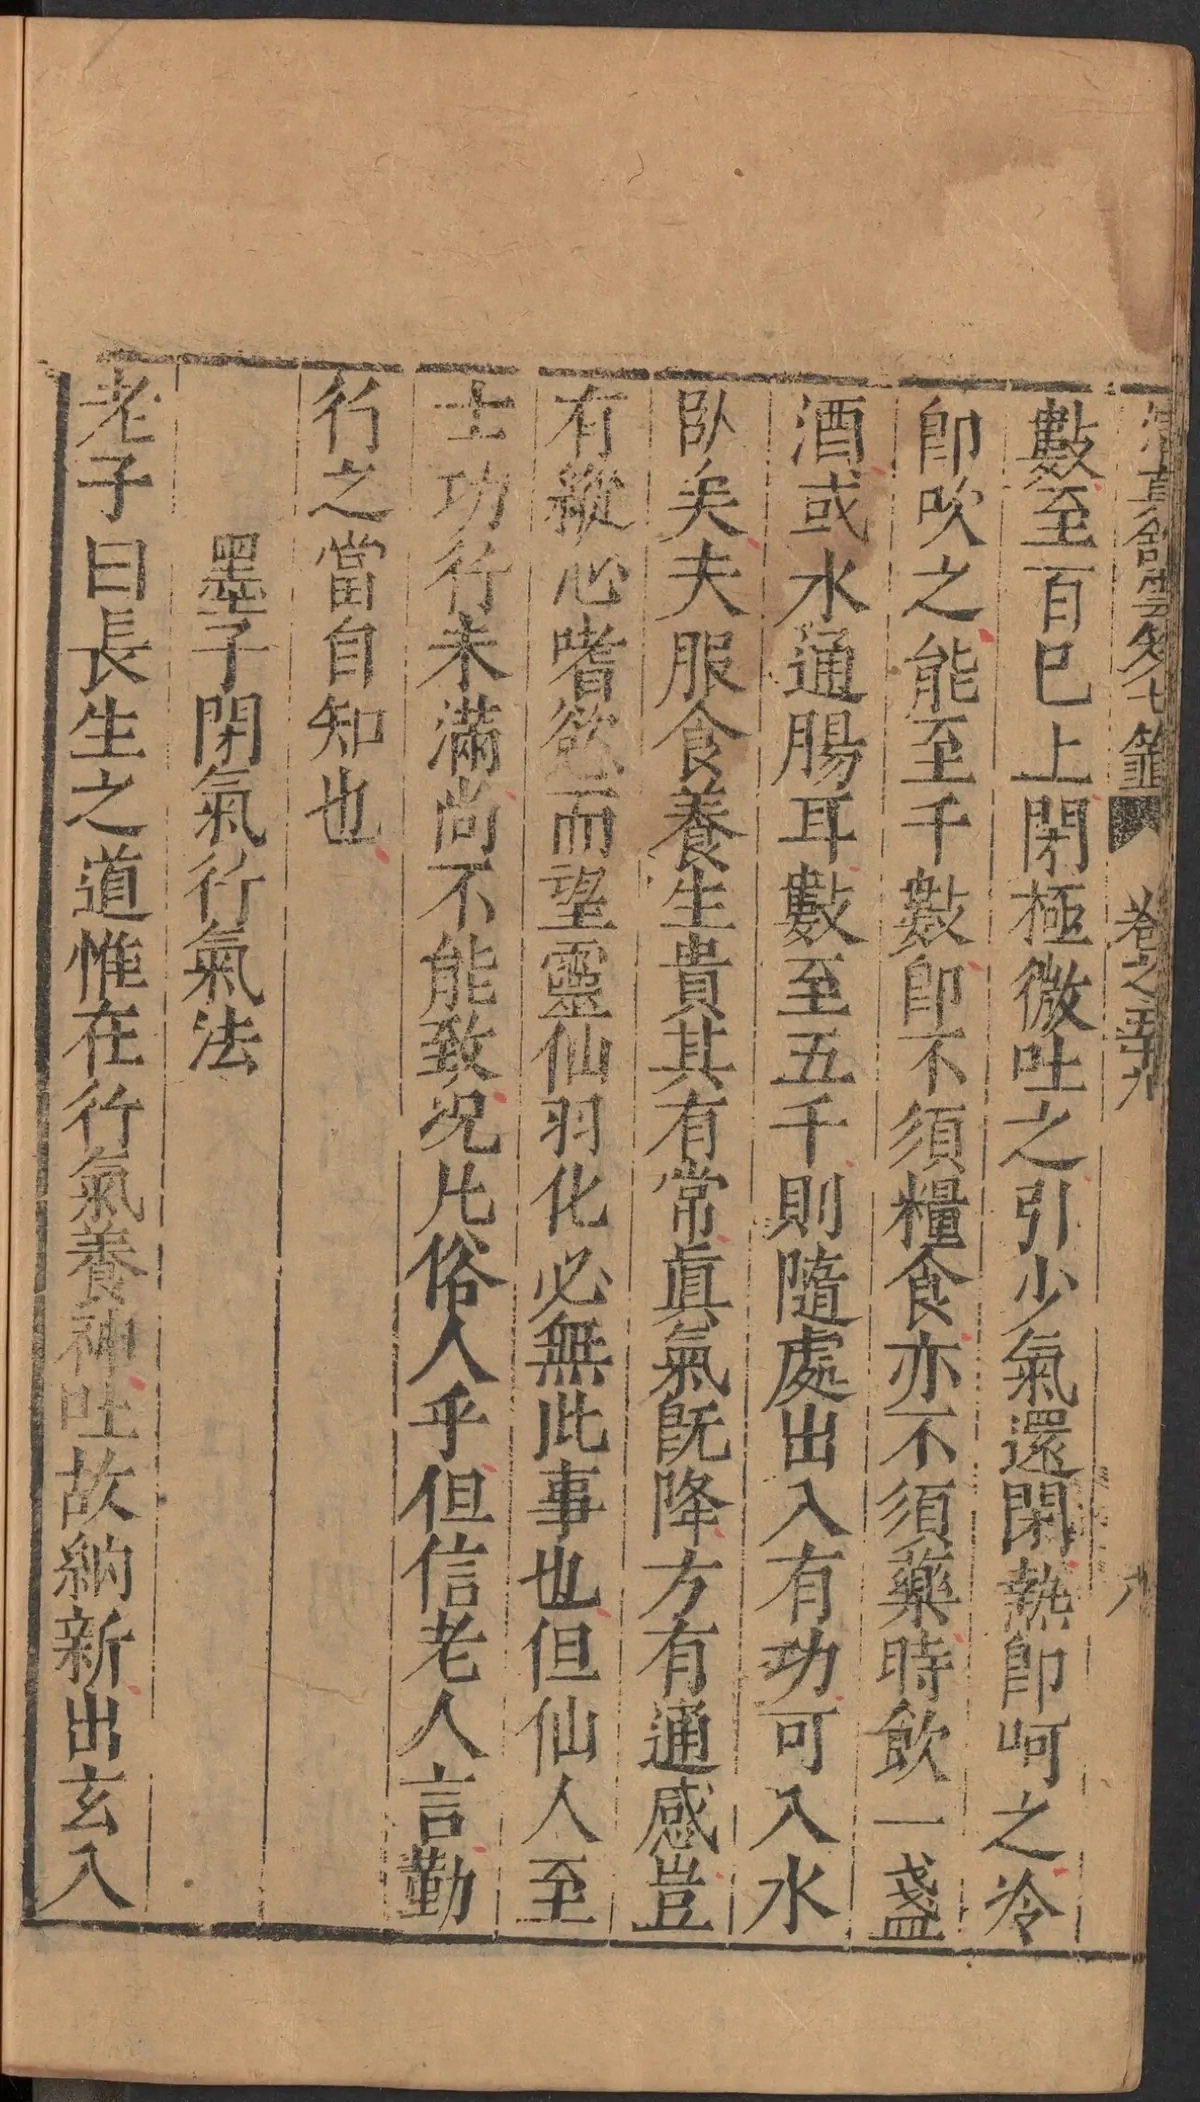 清真館雲笈七籤 卷之五十九 八
數至百已上閉極微吐之引少氣還閉熱卽呵之冷
卽吹之能至千數卽不須糧食亦不須藥時飲一盞
酒或水通腸耳數至五千則隨處出入有功可入水
臥矣夫服食養生貴其有常眞氣旣降方有通感豈
有縱心嗜慾而望靈仙羽化必無此事也但仙人至
士功行未滿尚不能致况凡俗人乎但信老人言勤
行之當自知也
墨子閉氣行氣法
老子曰長生之道惟在行氣養神吐故納新出玄入